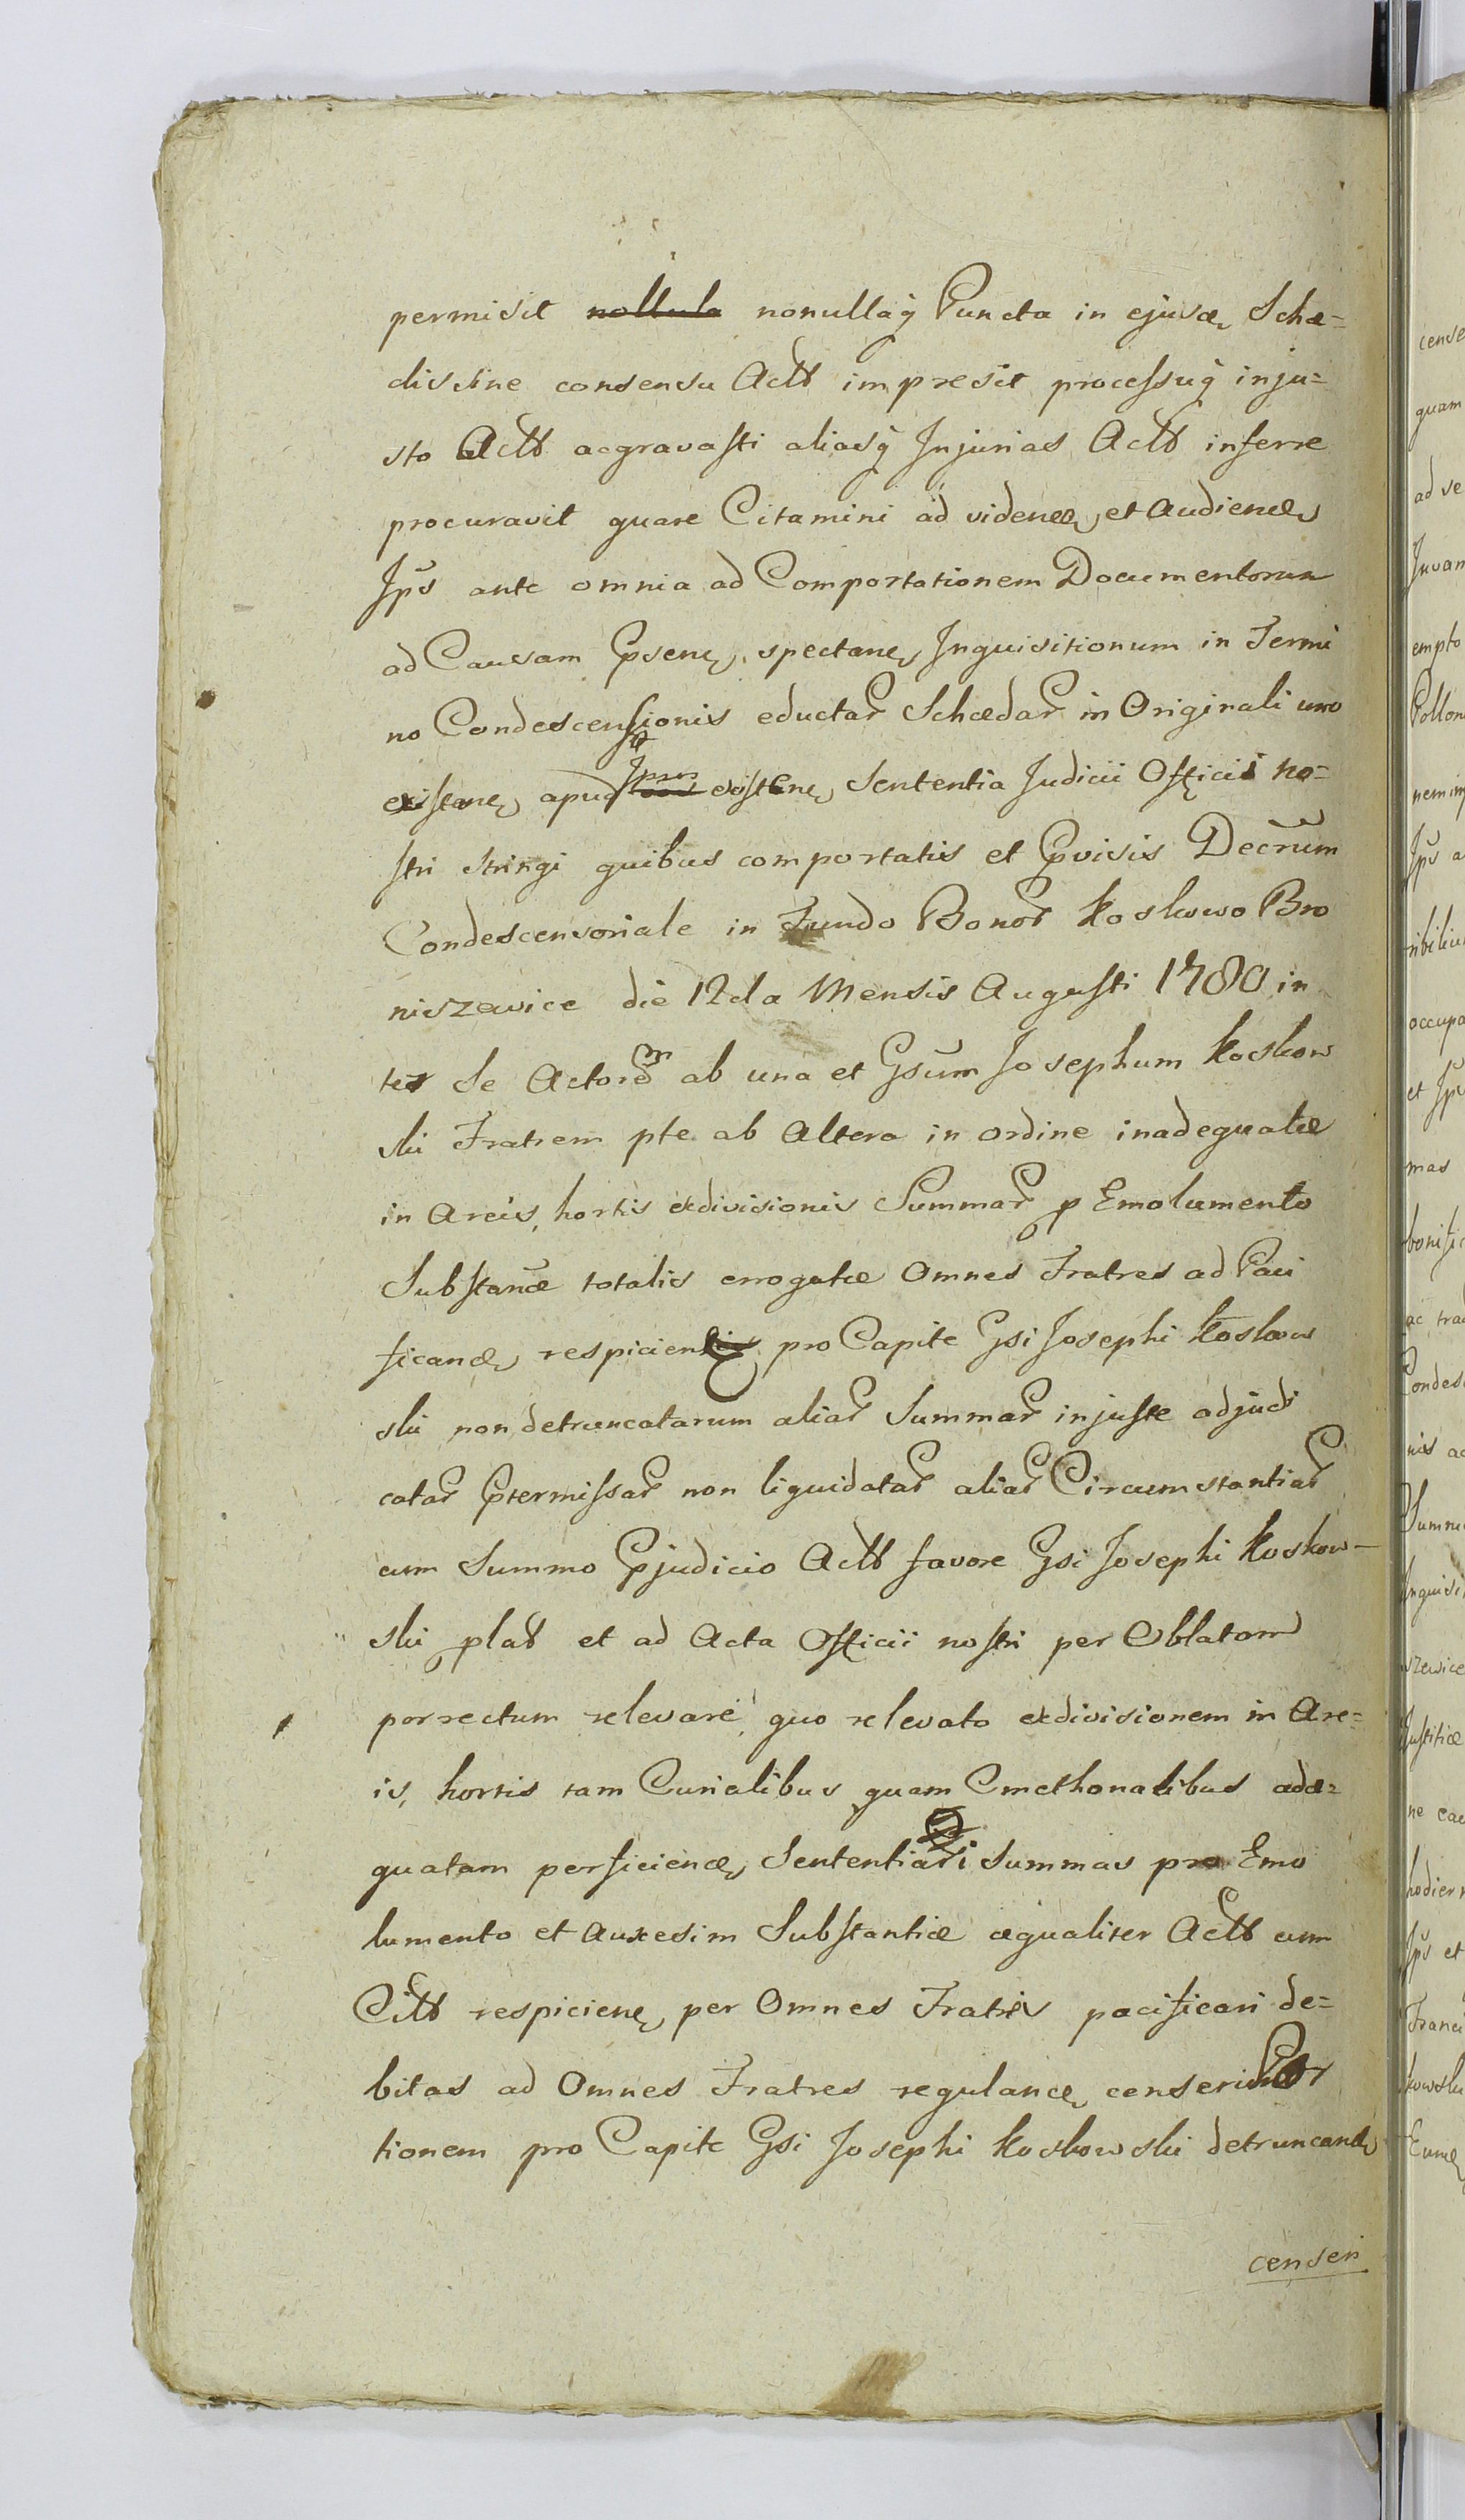 permisit nollula nonullaq Puncta in ejusd Schæ=
dis sine consensu Actt impresit processuq inju=
sto Actt aggravasti aliasq Injurias Actt inferre
procuravit quare Citamini ad videnđ et Audienđ
Ips ante omnia ad Comportationem Documentorum
ad Causam Psenc spectanc Inquisitionum in Termi
no Condescensionis eductar Schædar in Originali uno
existenc apud Ipsos existenc Sententia Judicii Officii no=
stri stringi quibus comportatis et Pvisis Decrum
Condescensoriale in Fundo Bonor Koskowo Bro
niszewice die 12da Mensis Augusti 1780 in
ter se Actorem ab una et Gsum Josephum Koskow
ski Fratrem pte ab Altera in ordine inadequatæ
in Areis, hortis exdivisionis Summar p Emolumento
Substanæ totalis errogatæ Omnes Fratres ad Paci
ficand respicien pro Capite Gsi Josephi Koskow
ski non detruncatarum aliar Summar injuste adjudi
catar Ptermissar non liquidatar aliar Circumstantiar
cum Summo Pjudicio Actt favore Gsi Josephi Koskow-
ski plat et ad Acta Officii nostri per Oblatam
porrectum relevari quo relevato exdivisionem in Are=
is, hortis tam Curialibus quam Cmethonalibus adæ=
quatam perficiend Sententiari Summas pro Emo
lumento et Auxesim Substantiæ æqualiter Actt cum
Citt respicienc per Omnes Fratres pacificari de=
bitas ad Omnes Fratres reguland censeri Por
tionem pro Capite Gsi Josephi Koskowski detruncand
censeri
cense
quam
ad ve
Juvan
empto
Collon
nemin
Ips a
nibiliu
occupa
et Ips
mas
bonifi
ac trad
Condes
nis ac
Summa
Inquisi
szewice
Justitiæ
ne cau
hodiern
Ips et
Franci
kowski
Eund